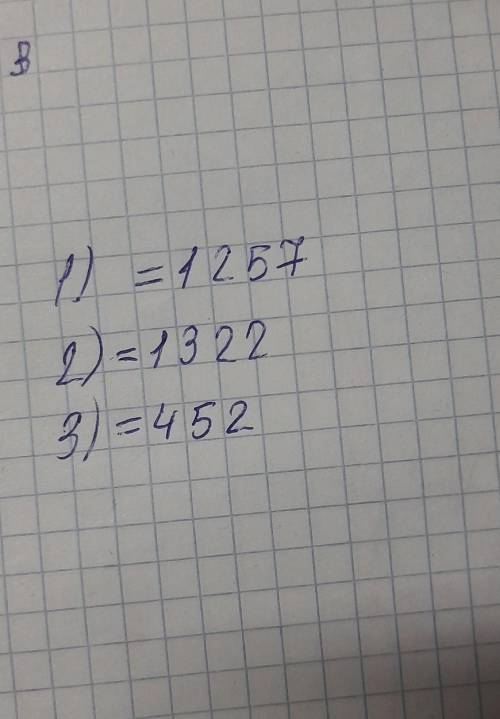 в
1) =1257
2) =1322
3) =452